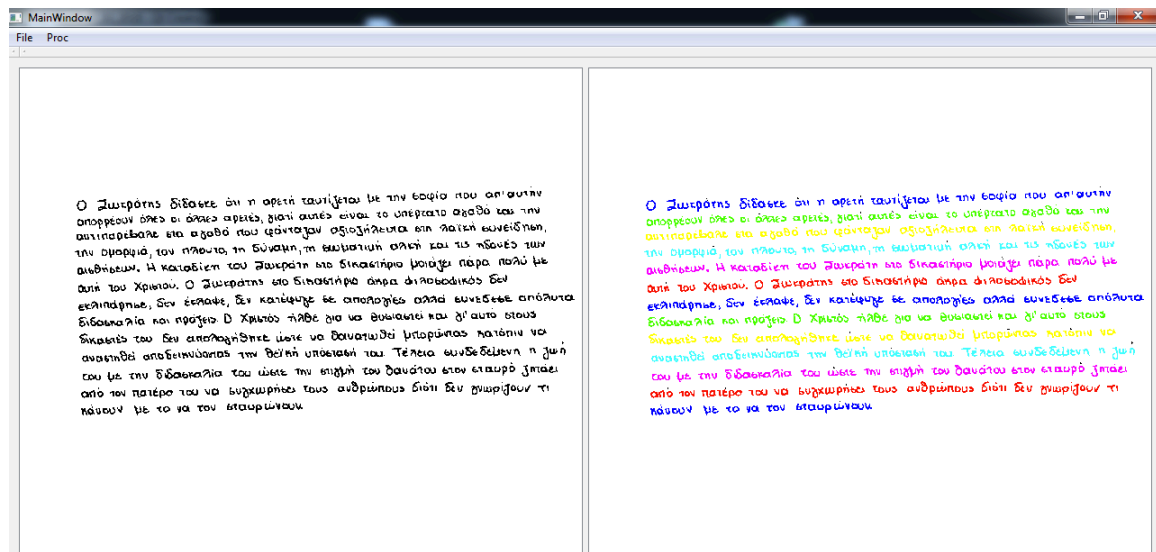 MainWindow
File Proc
Ο Σωκράτης δίδασκε ότι η αρετή ταυτίζεται με την σοφία που απ'αυτήν
απορρέουν όλες οι άλλες αρετές, γιατί αυτές είναι το υπέρτατο αγαθό και την
αντιπαρέβαλε στα αγαθά που φάνταζαν αξιοζήλευτα στη λαϊκή συνείδηση,
την ομορφιά, τον πλούτο, τη δύναμη, τη σωματική αλκή και τις ηδονές των
αισθήσεων. Η καταδίκη του Σωκράτη στο δικαστήριο μοιάζει πάρα πολύ με
αυτή του Χριστού. Ο Σωκράτης στο δικαστήριο άκρα φιλοσοφικός δεν
εκλιπάρησε, δεν έκλαψε, δεν κατέφυγε σε απολογίες αλλά συνέδεσε απόλυτα
διδασκαλία και πράξεις. Ο Χριστός ήλθε για να θυσιαστεί και γι'αυτό στους
δικαστές του δεν απολογήθηκε ώστε να θανατωθεί μπορώντας κατόπιν να
αναστηθεί αποδεικνύοντας την θεϊκή υπόστασή του. Τέλεια συνδεδεμένη η ζωή
του με την διδασκαλία του ώστε την στιγμή του θανάτου στον σταυρό ζητάει
από τον πατέρα του να συγχωρήσει τους ανθρώπους διότι δεν γνωρίζουν τι
κάνουν με το να τον σταυρώνουν
Ο Σωκράτης δίδασκε ότι η αρετή ταυτίζεται με την σοφία που απ'αυτήν
απορρέουν όλες οι άλλες αρετές, γιατί αυτές είναι το υπέρτατο αγαθό και την
αντιπαρέβαλε στα αγαθά που φάνταζαν αξιοζήλευτα στη λαϊκή συνείδηση,
την ομορφιά, τον πλούτο, τη δύναμη, τη σωματική αλκή και τις ηδονές των
αισθήσεων. Η καταδίκη του Σωκράτη στο δικαστήριο μοιάζει πάρα πολύ με
αυτή του Χριστού. Ο Σωκράτης στο δικαστήριο άκρα φιλοσοφικός δεν
εκλιπάρησε, δεν έκλαψε, δεν κατέφυγε σε απολογίες αλλά συνέδεσε απόλυτα
διδασκαλία και πράξεις. Ο Χριστός ήλθε για να θυσιαστεί και γι'αυτό στους
δικαστές του δεν απολογήθηκε ώστε να θανατωθεί μπορώντας κατόπιν να
αναστηθεί αποδεικνύοντας την θεϊκή υπόστασή του. Τέλεια συνδεδεμένη η ζωή
του με την διδασκαλία του ώστε την στιγμή του θανάτου στον σταυρό ζητάει
από τον πατέρα του να συγχωρήσει τους ανθρώπους διότι δεν γνωρίζουν τι
κάνουν με το να τον σταυρώνουν